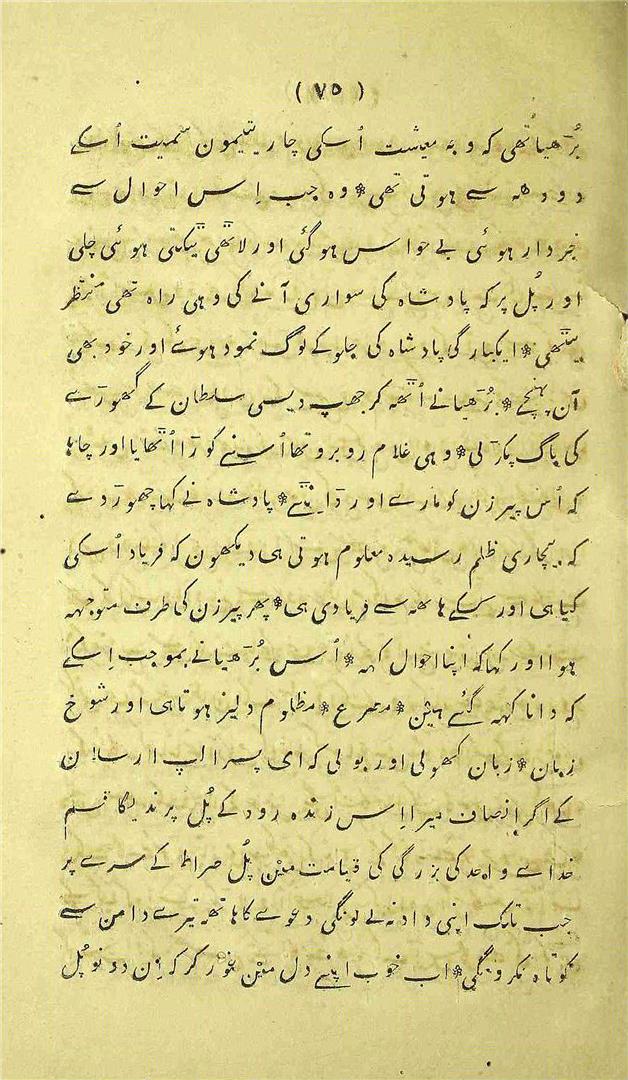 ( ٧٥ )
بُڑھیا تھی کہ وجہ معیشت اُسکی چار یتیمون سمیت اُسکے
دودھہ سے ہوتی تھی * وہ جب اِس احوال سے
خبردار ہوئی بےحواس ہوگئی اور لاٹھی ٹیکتی ہوئی چلی
اور پُل پر کہ پادشاہ کی سواری آنے کی وہی راہ تھی منتظر
بیٹھی * ایکبارگی پادشاہ کی جلو کے لوگ نمود ہوئے اور خود بھی
آن پہنچے * بُڑھیا نے اُٹھہ کر جھپ دیسی سلطان کے گھوڑے
کی باگ پکڑلی * وہی غلام روبرو تھا اُسنے کوڑا اُٹھایا اور چاہا
کہ اُس پیرزن کو مارے اور ڈانٹے * پادشاہ نے کہا چھوڑ دے
کہ بیچاری ظلم رسیدہ معلوم ہوتی ہی دیکھون کہ فریاد اُسکی
کیا ہی اور کسکے ہاتھہ سے فریادی ہی * پھر پیرزن کی طرف متوجہہ
ہوا اور کہا کہ اپنا احوال کہہ * اُس بُڑھیا نے بموجب اِسکے
کہ دانا کہہ گئے ہیں * مصرع * مظلوم دلیر ہوتا ہی اور شوخ
زبان * زبان کھولی اور بولی کہ ای پسر الپ ارسلان
کے اگر اِنصاف میرا اِس زندہ رود کے پُل پر ندیگا قسم
خداے واحد کی بزرگی کی قیامت میں پُل صراط کے سرے پر
جب تلک اپنی داد نہ لےلونگی دعوے کا ہاتھہ تیرے دامن سے
کوتاہ نکرونگی * اب خوب اپنے دل میں غور کر کہ اِن دونو پُل